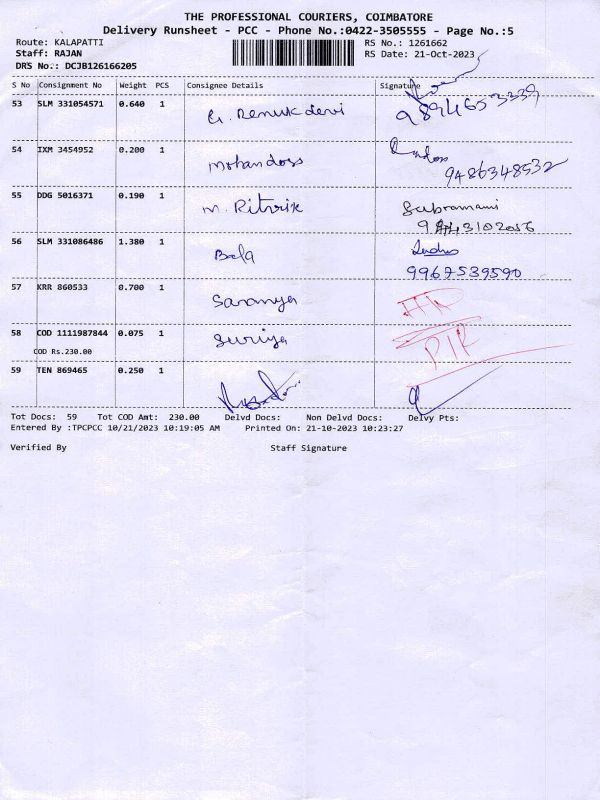 THE PROFESSIONAL COURIERS, COIMBATORE
Delivery Runsheet - PCC - Phone No.:0422-3505555 - Page No.:5
Route: KALAPATTI RS No.: 1261662
Staff: RAJAN RS Date: 21-Oct-2023
DRS No.: DCJB126166205
S No Consignment No Weight PCS Consignee Details Signature
53 SLM 331054571 0.640 1 G. Renuk devi 9894653339
54 IXM 3454952 0.200 1 Mohandoss 9486348532
55 DDG 5016371 0.190 1 M. Rithvik Subramani
56 SLM 331086486 1.380 1 Bala
9967539590
57 KRR 860533 0.700 1 Saranya
58 COD 1111987844 0.075 1 Suriya
COD Rs.230.00
59 TEN 869465 0.250 1
Tot Docs: 59 Tot COD Amt: 230.00 Delvd Docs: Non Delvd Docs: Delvy Pts:
Entered By :TPCPCC 10/21/2023 10:19:05 AM Printed On: 21-10-2023 10:23:27
Verified By Staff Signature